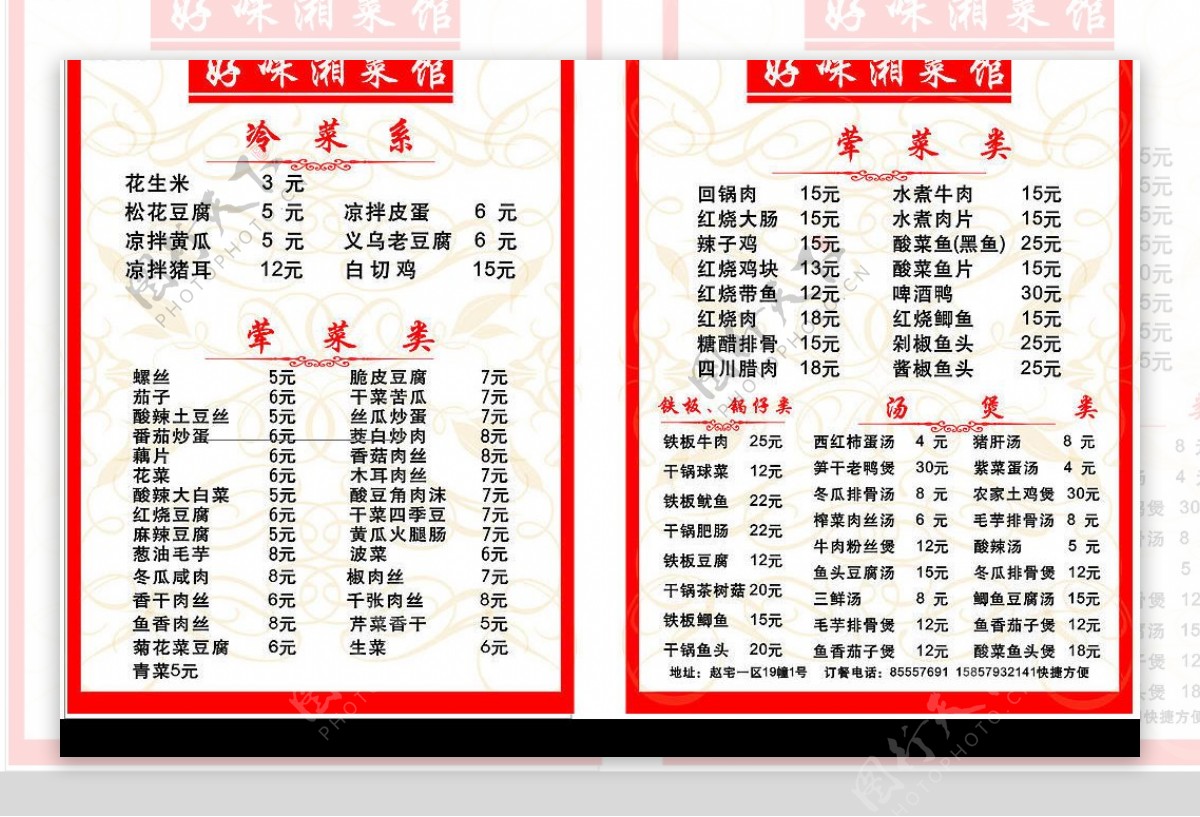 好味湘菜馆
冷菜系
花生米 3 元
松花豆腐 5 元 凉拌皮蛋 6 元
凉拌黄瓜 5 元 义乌老豆腐 6 元
凉拌猪耳 12元 白切鸡 15元
荤菜类
螺丝 5元 脆皮豆腐 7元
茄子 6元 干菜苦瓜 7元
酸辣土豆丝 5元 丝瓜炒蛋 7元
番茄炒蛋 6元 茭白炒肉 8元
藕片 6元 香菇肉丝 8元
花菜 6元 木耳肉丝 7元
酸辣大白菜 5元 酸豆角肉沫 7元
红烧豆腐 6元 干菜四季豆 7元
麻辣豆腐 5元 黄瓜火腿肠 7元
葱油毛芋 8元 波菜 6元
冬瓜咸肉 8元 椒肉丝 7元
香干肉丝 6元 千张肉丝 8元
鱼香肉丝 8元 芹菜香干 5元
菊花菜豆腐 6元 生菜 6元
青菜5元
好味湘菜馆
荤菜类
回锅肉 15元 水煮牛肉 15元
红烧大肠 15元 水煮肉片 15元
辣子鸡 15元 酸菜鱼(黑鱼) 25元
红烧鸡块 13元 酸菜鱼片 15元
红烧带鱼 12元 啤酒鸭 30元
红烧肉 18元 红烧鲫鱼 15元
糖醋排骨 15元 剁椒鱼头 25元
四川腊肉 18元 酱椒鱼头 25元
铁板、锅仔类
铁板牛肉 25元
干锅球菜 12元
铁板鱿鱼 22元
干锅肥肠 22元
铁板豆腐 12元
干锅茶树菇 20元
铁板鲫鱼 15元
干锅鱼头 20元
汤煲类
西红柿蛋汤 4 元 猪肝汤 8 元
笋干老鸭煲 30元 紫菜蛋汤 4 元
冬瓜排骨汤 8 元 农家土鸡煲 30元
榨菜肉丝汤 6 元 毛芋排骨汤 8 元
牛肉粉丝煲 12元 酸辣汤 5 元
鱼头豆腐汤 15元 冬瓜排骨煲 12元
三鲜汤 8 元 鲫鱼豆腐汤 15元
毛芋排骨煲 12元 鱼香茄子煲 12元
鱼香茄子煲 12元 酸菜鱼头煲 18元
地址：赵宅一区19幢1号 订餐电话：85557691 15857932141快捷方便